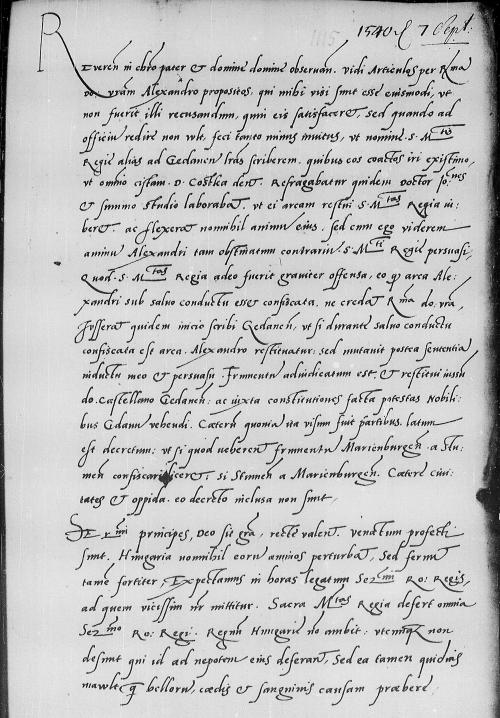 1115
1540 7 Sept:
Reveren in chro pater et domine domine observan. Vidi Articulos per Rma
do. vram Alexandro propositos, qui mihi visi sunt esse eiusmodi, ut
non fuerit illi recusandum, quin eis satisfaceret, sed quando ad
officiu redire non vult, feci tanto minus invitus, ut nomine S. Mtis
Regie alias ad Gedanen lras scriberem. quibus eos coactos iri existimo,
ut omnio cistam D. Costka dent. Refragabatur quidem Doctor
et summo studio laborabat, ut ei arcam restitui S. Mtas Regia iu-
beret. ac flexerat nonnihil animu eius. sed cum ego viderem
animu Alexandri tam obstinatum contrariu S. Mti Regie persuasi,
Quod S. Mtas Regia adeo fuerit graviter offensa, eo q arca Ale-
xandri sub salvo conductu esset confiscata. ne credat Rma do. vra,
Jusserat quidem inicio scribi Gedanen, ut si durante salvo conductu
confiscata est arca, Alexandro restituatur: sed mutavit postea sententia
inductu meo et persuasu. Frumentu adiudicatum est, et restitui iussu
do. Castellano Gedanen: ac iuxta constitutiones facta potestas Nobili-
bus Gdanu vehendi. Caeteru quonia ita visum fuit partibus, latum
est decretum: ut si quod veherent frumentu Marienburgen. a Stu-
men confiscari liceret: si Stumen a Marienburgen. Caetere civi-
tates et oppida eo decreto inclusa non sunt.
Sermi principes, Deo sit gra, recte valent. venatum profecti
sunt. Hungaria nonnihil eoru animos perturbat, sed ferunt
tame fortiter, Expectamus in horas legatum Sermi Ro: Regis,
ad quem vicissim nr mittitur. Sacra Mtas Regia defert omnia
Sermo Ro: Regi. Regnu Hungarie no ambit: utcumq non
desunt qui id ad nepotem eius deferant, sed ea tamen quidvis
mavult q belloru, caedis et sanguinis causam praebere